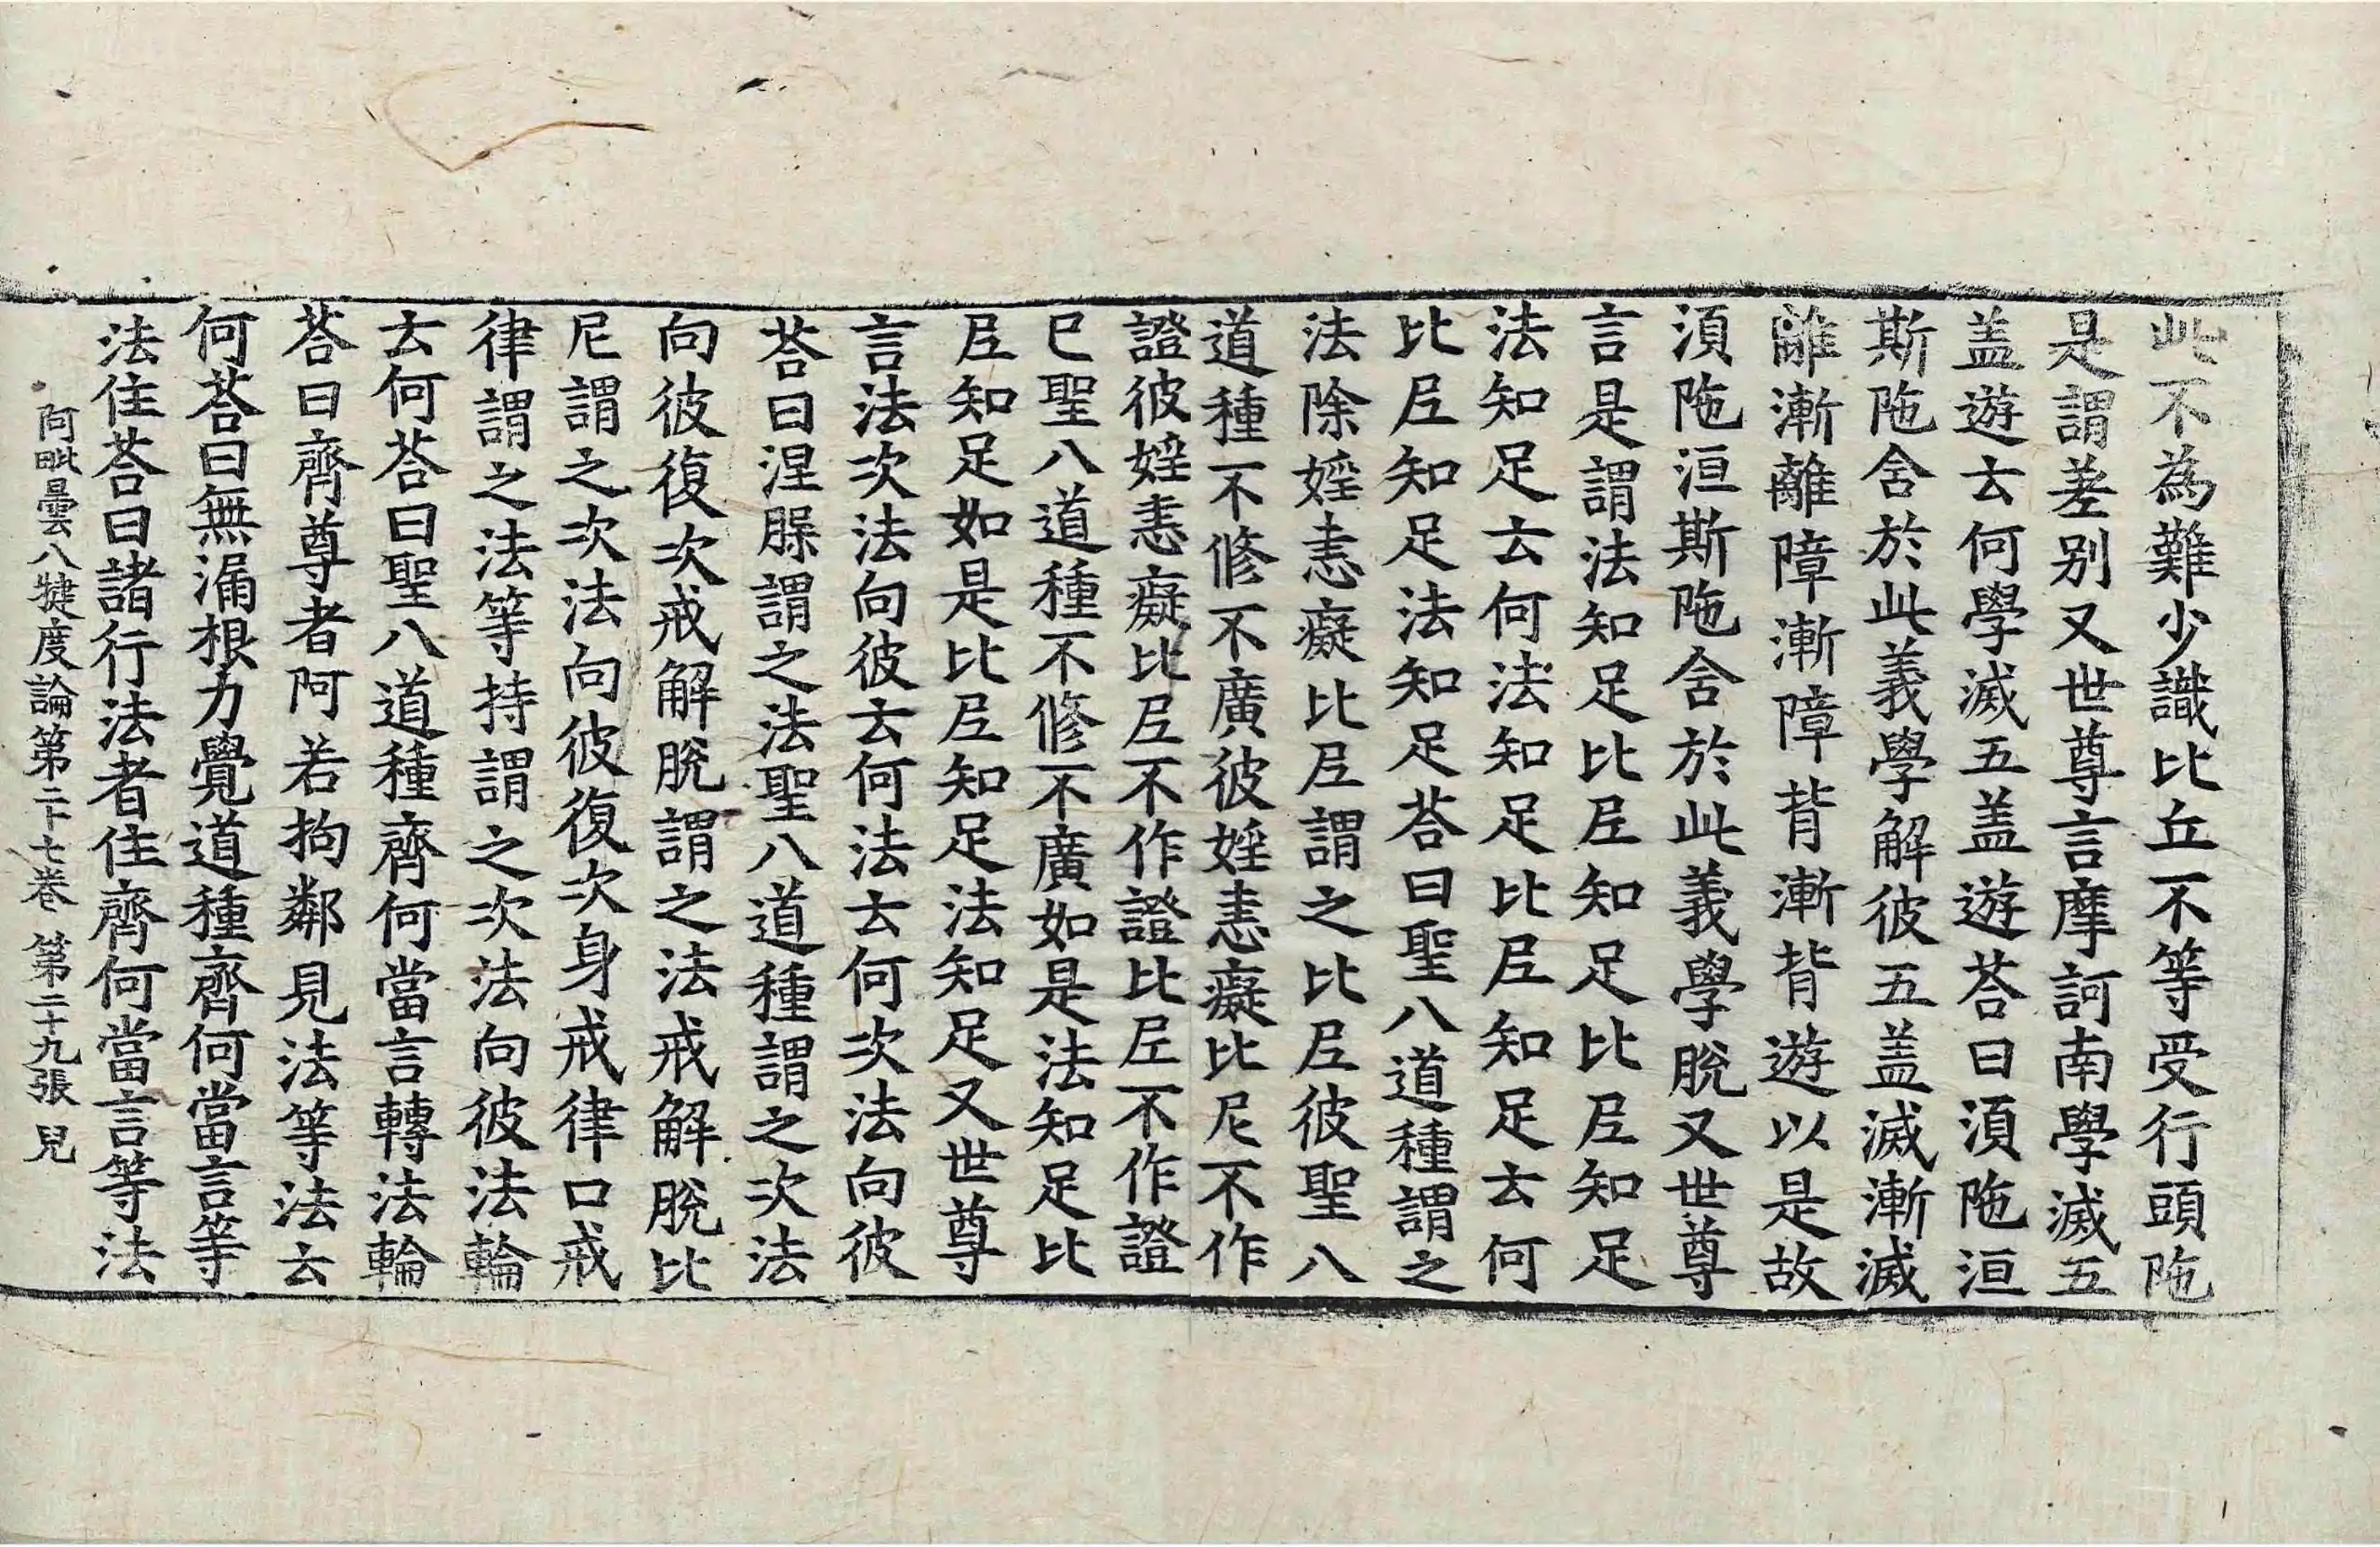 此不為難少識比丘不等受行頭陁
是謂差别又世尊言摩訶南學滅五
盖遊云何學滅五盖遊荅曰湏陁洹
斯陁含於此義學解彼五盖滅漸滅
離漸離障漸障背漸背遊以是故
湏陁洹斯陁含於此義學脫又世尊
言是謂法知足比𡰱知足比𡰱知足
法知足云何法知足比𡰱知足云何
比𡰱知足法知足荅曰聖八道種謂之
法除婬恚癡比𡰱謂之比𡰱彼聖八
道種不修不廣彼婬恚癡比尼不作
證彼婬恚癡比𡰱不作證比𡰱不作證
已聖八道種不修不廣如是法知足比
𡰱知足如是比𡰱知足法知足又世尊
言法次法向彼云何法云何次法向彼
荅曰涅槃謂之法聖八道種謂之次法
向彼復次戒解脫謂之法戒解脫比
尼謂之次法向彼復次身戒律口戒
律謂之法等持謂之次法向彼法輪
云何荅曰聖八道種齊何當言轉法輪
荅曰齊尊者阿若拘鄰見法等法云
何荅曰無漏根力覺道種齊何當言等
法住荅曰諸行法者住齊何當言等法
阿毗曇八犍度論第二十七卷 第二十九張 兒